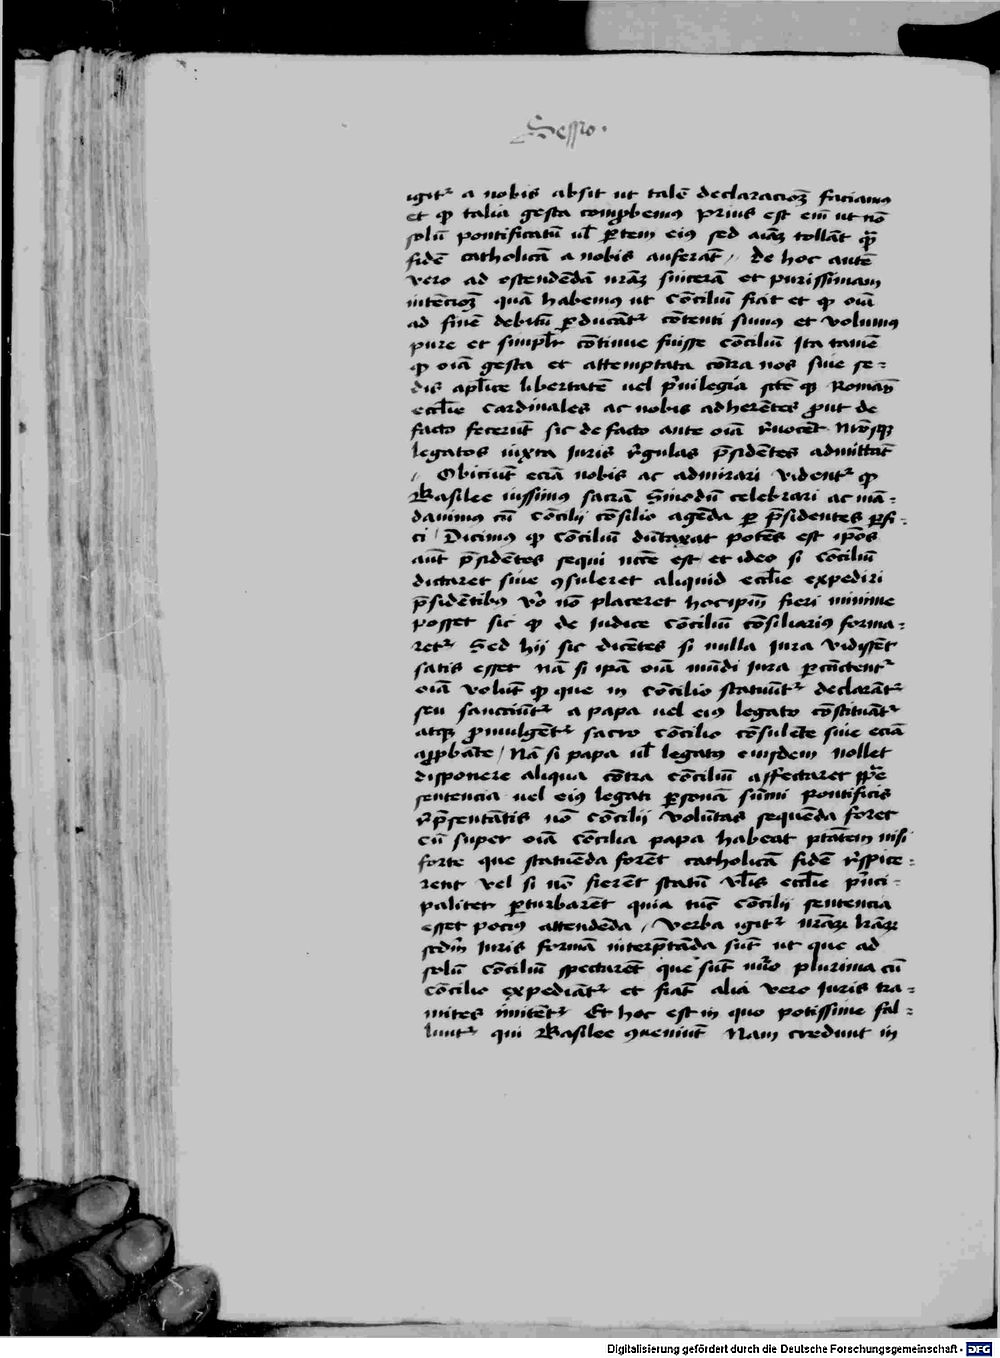 Sessio.
igit᷑ a nobis absit ut talē declaracioꝫ faciamꝰ
et ꝙ talia gesta comꝓbemꝰ Prius est em̄ ut nō
solū pontificatū ul̄ ꝑtem eiꝰ sed aīaꝫ tollāt quā
fidē catholicā a nobis auferāt / De hoc autē
vero ad ostendēdā nr̄aꝫ sincerā et purissimam
intēcioꝫ quā habemꝰ ut Cōciliū fiat et ꝙ oīa
ad finē debitū ꝑducāt᷑ cōtenti sumꝰ et volumꝰ
pure et simpl᷑r cōtinue fuisse Cōciliū Ita tamē
ꝙ oīa gesta et attemptata cōtra nos siue se=
dis apl̄ice libertatē uel p͛uilegia sctē ꝙ Romaꝫ
eccl̄ie Cardinales ac nobis adherētes ꝓut de
facto fecerūt sic de facto ante oīa r͛uocēt Nr̄osqꝫ
legatos iuxta Iuris r͛gulas p̄sidētes admittāt
/ Obiciūt eciā nobis ac admirari vidēnt᷑ ꝙ
Basilee iussimꝰ sacrā Sinodū celebrari ac mā=
dauimꝰ cū Cōcilij cōsilio agēda ꝑ p̄sidentes ꝑfi=
ci / Dicimꝰ ꝙ Cōciliū dūtaxat potēs est ip̄os
aūt p̄sidētes sequi nc̄ce est et ideo si Cōciliū
dictaret siue ꝯsuleret aliquid eccl̄ie expediri
p̄sidētibꝰ v͛o nō placeret hocip̄m fieri minime
posset sic ꝙ de Iudice Cōciliū cōsiliariꝰ forma=
ret᷑ Sed hij sic dicētes si nulla Iura vidissēt
satis esset Nā si ip̄a oīa mūdi Iura ꝑcūctent᷑
oīa volūt ꝙ que in Cōcilio statuūt᷑ declarāt᷑
seu sanciūt᷑ a papa uel eiꝰ legato cōstituāt᷑
atqꝫ ꝓmulgēt᷑ sacro Cōcilio cōsulēte siue eciā
aꝓbāte / Nā si papa ul̄ legatꝰ eiusdem nollet
disponere aliqua cōtra Cōciliū affectaret ꝓp͛e
sentencia uel eiꝰ legati ꝑsonā sūmi pontificis
r͛p̄sentātis nō Cōcilij volūtas sequēda foret
Cū super oīa Cōcilia papa habeat ptātem nisi
forte que statuēda forēt catholicā fidē r͛spice=
rent vel si nō fierēt statū vl̄is eccl̄ie p͛nci=
paliter ꝑturbarēt quia tūc Cōcilij sentencia
esset pociꝰ attendēda / Verba igit᷑ nr̄aꝝ lr̄aꝝ
scd̄m Iuris formā interp̄tāda sūt ut que ad
solū Cōciliū spectarēt que sūt nūo plurima cū
Cōcilio expediāt᷑ et fiāt alia vero Iuris tra=
mites imitēt᷑ Et hoc est in quo potissime fal=
lunt᷑ qui Basilee ꝯueniūt Nam credunt in
Digitalisierung gefördert durch die Deutsche Forschungsgemeinschaft - DFG